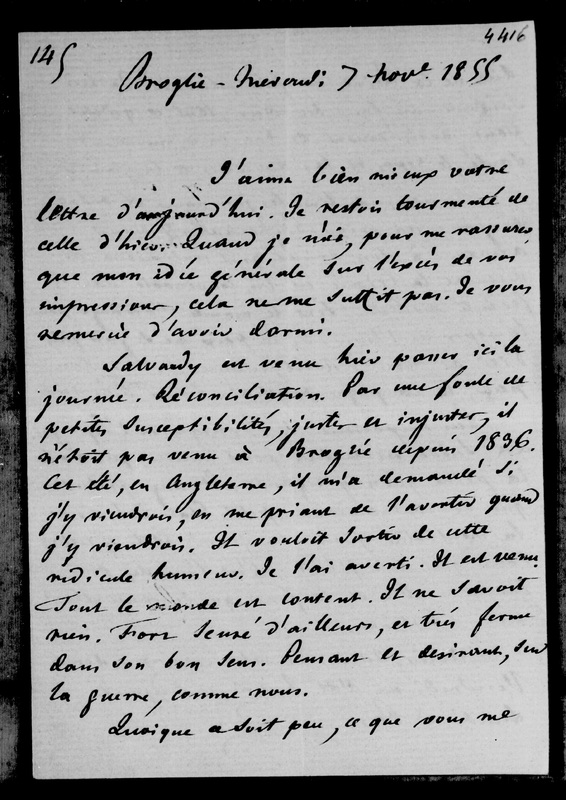 145
4416
Broglie - Mercredi 7 Nov. 1855
J'aime bien mieux votre
lettre d'aujourd'hui. Je restois tourmenté de
celle d'hier. Quand je n'ai, pour me rassurer
que mon idée générale sur l'excès de vos
impressions, cela ne me suffit pas. Je vous
remercie d'avoir dormi.
Salvandy est venu hier passer ici la
journée. Réconciliation. Par une foule de
petites susceptibilités, justes et injustes, il
n'étoit pas venu à Broglie depuis 1836.
Cet été, en Angleterre, il m'a demandé si
j'y viendrois, en me priant de l'avertir quand
j'y viendrois. Il vouloit sortir de cette
ridicule humeur. Je l'ai averti. Il est venu.
Tout le monde est content. Il ne savoit
rien. Fort sensé d'ailleurs, et très ferme
dans son bon sens. Pensant et desirant, sur
la guerre, comme nous.
Quoique ce soit peu, ce que vous me